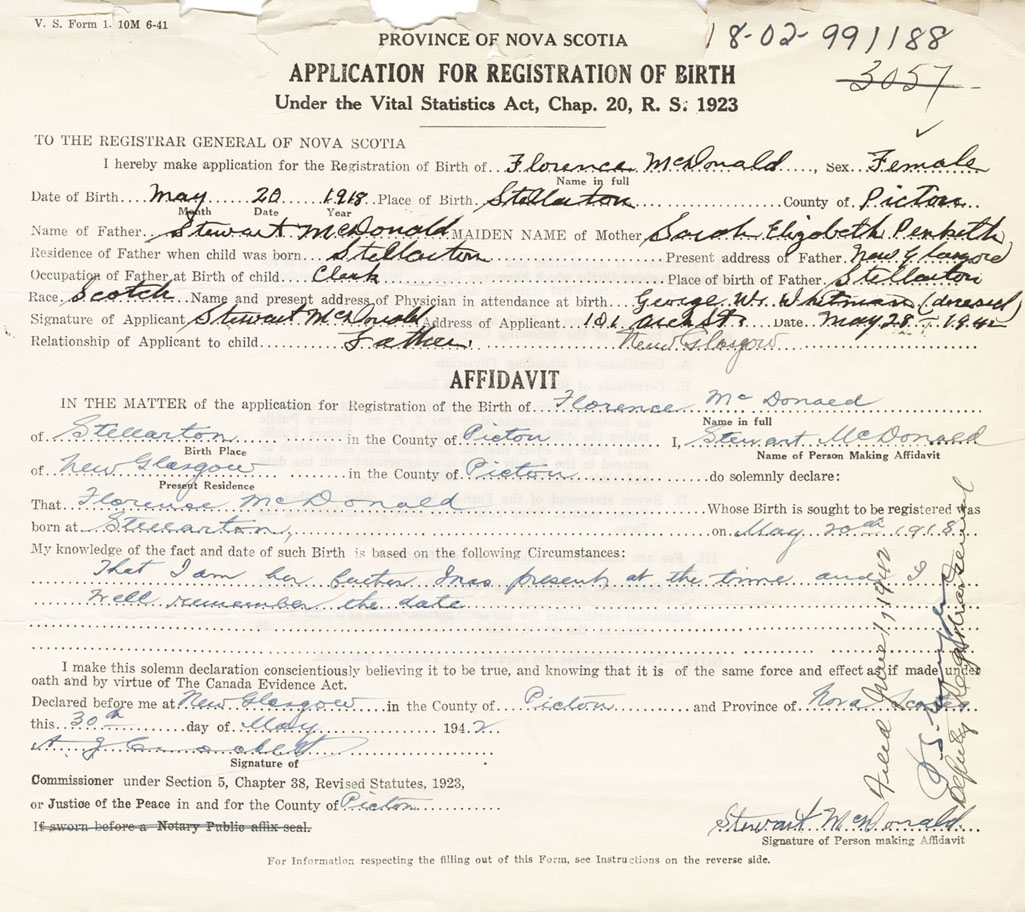 V. S. Form 1. 10M 6-41
18-02-991188
PROVINCE OF NOVA SCOTIA
3057
APPLICATION FOR REGISTRATION OF BIRTH
Under the Vital Statistics Act, Chap. 20, R. S. 1923
TO THE REGISTRAR GENERAL OF NOVA SCOTIA
I hereby make application for the Registration of Birth of Florence McDonald, Sex Female
Name in full
Date of Birth May 20 1918 Place of Birth Stellarton County of Picton
Month Date Year
Name of Father Stewart McDonald MAIDEN NAME of Mother Sarah Elizabeth Penketh
Residence of Father when child was born Stellarton Present address of Father New Glasgow
Occupation of Father at Birth of child Clerk Place of birth of Father Stellarton
Race Scotch Name and present address of Physician in attendance at birth George W. Whitman (deceased)
Signature of Applicant Stewart McDonald Address of Applicant 181 Arch St. Date May 28 1942
Relationship of Applicant to child Father. New Glasgow
AFFIDAVIT
IN THE MATTER of the application for Registration of the Birth of Florence McDonald
Name in full
of Stellarton in the County of Picton I, Stewart McDonald
Birth Place Name of Person Making Affidavit
of New Glasgow in the County of Picton do solemnly declare:
Present Residence
That Florence McDonald Whose Birth is sought to be registered was
born at Stellarton, on May 20th 1918
My knowledge of the fact and date of such Birth is based on the following Circumstances:
That I am her father I was present at the time and I
well remember the date
I make this solemn declaration conscientiously believing it to be true, and knowing that it is of the same force and effect as if made under
oath and by virtue of The Canada Evidence Act.
Declared before me at New Glasgow in the County of Picton and Province of Nova Scotia
this 30th day of May 1942
Signature of
Commissioner under Section 5, Chapter 38, Revised Statutes, 1923,
or Justice of the Peace in and for the County of Picton
If sworn before a Notary Public affix seal.
Stewart McDonald
Signature of Person making Affidavit
For Information respecting the filling out of this Form, see Instructions on the reverse side.
Filed June 1, 1942
Deputy Registrar General